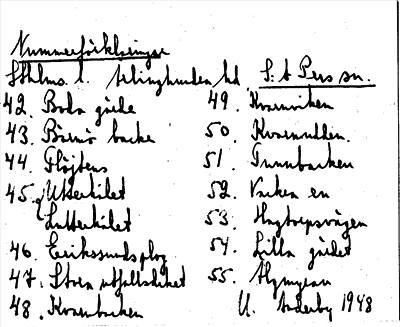 Nummerförklaringar
Sthlms l. Ärlinghundra hd S:t Pers sn.
42. Boda gärde
43. Brännö backe
44. Flöjtens
45. Utterkilet
Lutterkilet
46. Erikssundsplog
47. Stora utfallsdiket
48. Kvarnbacken
49. Kvarnviken
50. Kvarnudden.
51. Tunnbacken
52. Vacken en
53. Hagtorpsvägen
54. Lilla gärdet
55.
U. Söderby 1948